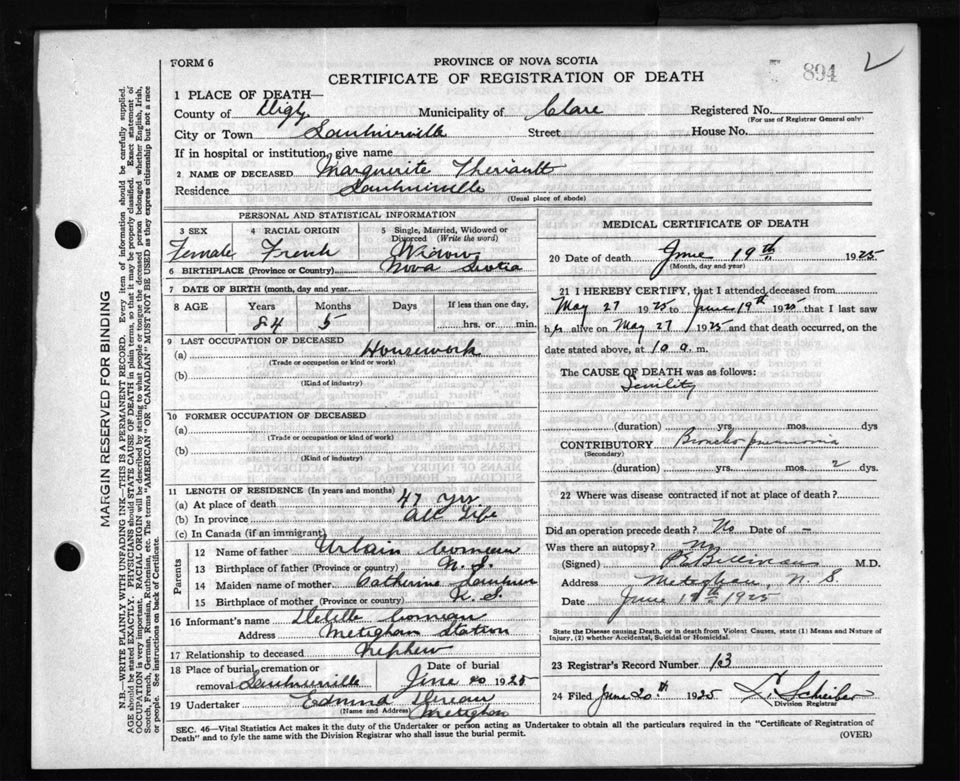 FORM 6
PROVINCE OF NOVA SCOTIA
CERTIFICATE OF REGISTRATION OF DEATH
894
1 PLACE OF DEATH—
County of Digby Municipality of Clare Registered No.
(For use of Registrar General only)
City or Town Street House No.
If in hospital or institution, give name
2 NAME OF DECEASED Marguerite Theriault
Residence
(Usual place of abode)
PERSONAL AND STATISTICAL INFORMATION
3 SEX Female
4 RACIAL ORIGIN French
5 Single, Married, Widowed or Divorced (Write the word) Widow
6 BIRTHPLACE (Province or Country) Nova Scotia
7 DATE OF BIRTH (month, day and year)
8 AGE Years Months Days If less than one day,
84 5 hrs. or min.
9 LAST OCCUPATION OF DECEASED
(a) Housework
(Trade or occupation or kind of work)
(b)
(Kind of industry)
10 FORMER OCCUPATION OF DECEASED
(a)
(Trade or occupation or kind of work)
(b)
(Kind of industry)
11 LENGTH OF RESIDENCE (In years and months)
(a) At place of death 47 yrs
(b) In province All Life
(c) In Canada (if an immigrant)
Parents
12 Name of father Urbain Comeau
13 Birthplace of father (Province or country) N. S.
14 Maiden name of mother Catherine
15 Birthplace of mother (Province or Country) N. S.
16 Informant's name Comeau
Address Meteghan Station
17 Relationship to deceased Nephew
18 Place of burial, cremation or removal
Date of burial June 20 1925
19 Undertaker Edmund
(Name and Address) Meteghan
MEDICAL CERTIFICATE OF DEATH
20 Date of death June 19th 1925
(Month, day and year)
21 I HEREBY CERTIFY, that I attended deceased from
May 27 1925 to June 19th 1925 that I last saw
her alive on May 27 1925 and that death occurred, on the
date stated above, at 10 a. m.
The CAUSE OF DEATH was as follows:
Senility
(duration) yrs. mos. dys
CONTRIBUTORY Broncho pneumonia
(Secondary)
(duration) yrs. mos. 2 dys.
22 Where was disease contracted if not at place of death?
Did an operation precede death? No Date of —
Was there an autopsy? No
(Signed) P E Belliveau M.D.
Address Meteghan, N. S.
Date June 1925
State the Disease causing Death, or in death from Violent Causes, state (1) Means and Nature of
Injury, (2) whether Accidental, Suicidal or Homicidal.
23 Registrar's Record Number 13
24 Filed June 20th 1925
Division Registrar
SEC. 46—Vital Statistics Act makes it the duty of the Undertaker or person acting as Undertaker to obtain all the particulars required in the "Certificate of Registration of
Death" and to fyle the same with the Division Registrar who shall issue the burial permit.
(OVER)
MARGIN RESERVED FOR BINDING
N.B.—WRITE PLAINLY WITH UNFADING INK—THIS IS A PERMANENT RECORD. Every item of information should be carefully supplied.
AGE should be stated EXACTLY. PHYSICIANS should STATE CAUSE OF DEATH in plain terms, so that it may be properly classified. Exact statement of
OCCUPATION is very important. RACIAL ORIGIN will be described by stating to what people or tongue the deceased person belonged whether English, Irish,
Scotch, French, German, Russian, Ruthenian, etc. The terms "AMERICAN" or "CANADIAN" MUST NOT BE USED as they express citizenship but not a race
or people. See instructions on back of Certificate.